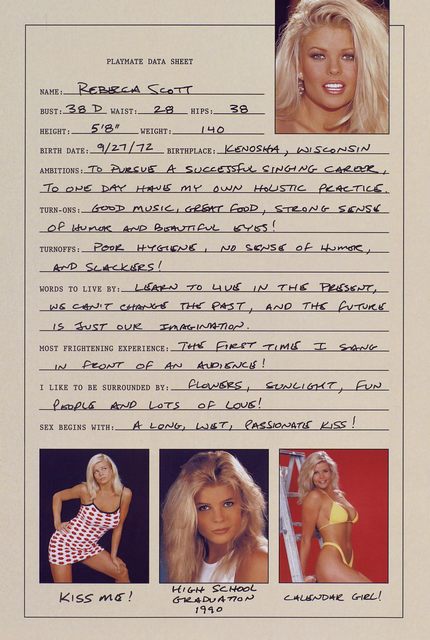 PLAYMATE DATA SHEET
NAME: REBECCA SCOTT
BUST: 38 D WAIST: 28 HIPS: 38
HEIGHT: 5'8" WEIGHT: 140
BIRTH DATE: 9/27/72 BIRTHPLACE: KENOSHA, WISCONSIN
AMBITIONS: TO PURSUE A SUCCESSFUL SINGING CAREER,
TO ONE DAY HAVE MY OWN HOLISTIC PRACTICE.
TURN-ONS: GOOD MUSIC, GREAT FOOD, STRONG SENSE
OF HUMOR AND BEAUTIFUL EYES!
TURNOFFS: POOR HYGIENE, NO SENSE OF HUMOR,
AND SLACKERS!
WORDS TO LIVE BY: LEARN TO LIVE IN THE PRESENT,
WE CAN'T CHANGE THE PAST, AND THE FUTURE
IS JUST OUR IMAGINATION.
MOST FRIGHTENING EXPERIENCE: THE FIRST TIME I SANG
IN FRONT OF AN AUDIENCE!
I LIKE TO BE SURROUNDED BY: FLOWERS, SUNLIGHT, FUN
PEOPLE AND LOTS OF LOVE!
SEX BEGINS WITH: A LONG, WET, PASSIONATE KISS!
KISS ME!
HIGH SCHOOL
GRADUATION
1990
CALENDAR GIRL!